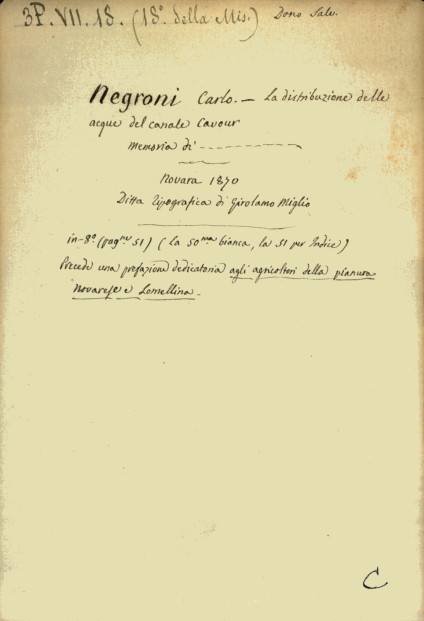 3P. VII. 18. (18° della Mis.) Dono Salv.
Negroni Carlo. — La distribuzione delle
acque del canale Cavour
Memoria di
Novara 1870
Ditta Tipografica di Girolamo Miglio
in-8° (pagne 51) (la 50ma bianca, la 51 per Indice)
Precede una prefazione dedicatoria agli agricoltori della pianura
Novarese e Lomellina.
C